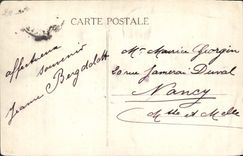 CARTE POSTALE
affectueux
souvenir
Jeanne Bergdolt
Mr Maurice Georgin
20 rue Jamerai Duval
Nancy
Mthe et Melle